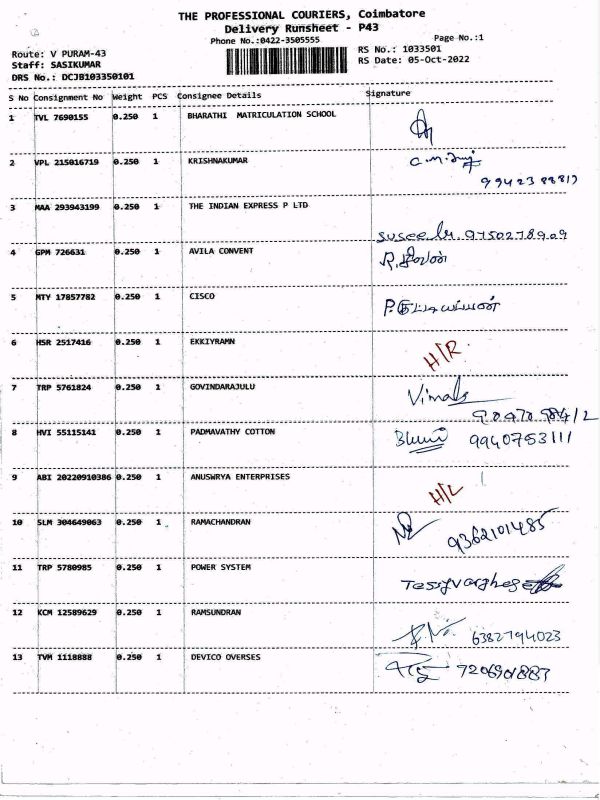 THE PROFESSIONAL COURIERS, Coimbatore
Delivery Runsheet - P43
Phone No.:0422-3505555
Page No.:1
Route: V PURAM-43
RS No.: 1033501
Staff: SASIKUMAR
RS Date: 05-Oct-2022
DRS No.: DCJB103350101
S No Consignment No Weight PCS Consignee Details Signature
1 TVL 7690155 0.250 1 BHARATHI MATRICULATION SCHOOL
2 VPL 215016719 0.250 1 KRISHNAKUMAR
3 MAA 293943199 0.250 1 THE INDIAN EXPRESS P LTD
9750278909
4 GPM 726631 0.250 1 AVILA CONVENT
5 MTY 17857782 0.250 1 CISCO
6 HSR 2517416 0.250 1 EKKIYRAMN
H/R
7 TRP 5761824 0.250 1 GOVINDARAJULU
Vimala
8 HVI 55115141 0.250 1 PADMAVATHY COTTON
9940753111
9 ABI 20220910386 0.250 1 ANUSWRYA ENTERPRISES
H/L
10 SLM 304649063 0.250 1 RAMACHANDRAN
9362101485
11 TRP 5780985 0.250 1 POWER SYSTEM
Tessyvarghese
12 KCM 12589629 0.250 1 RAMSUNDRAN
6382794023
13 TVM 1118888 0.250 1 DEVICO OVERSES
7206901887